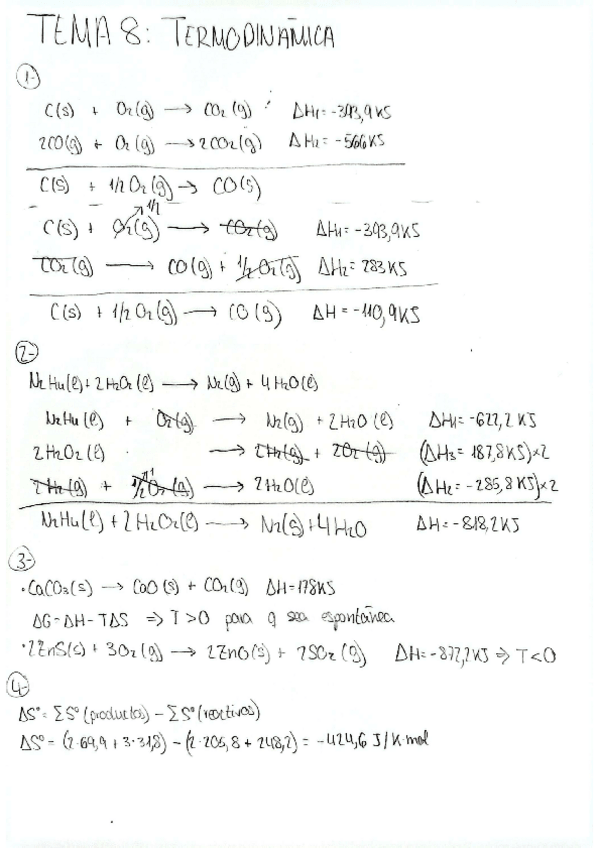 TEMA 8: TERMODINÁMICA
1-
C(s) + O₂(g) → CO₂(g) ΔH₁=-393,9KJ
2CO(g) + O₂(g) → 2CO₂(g) ΔH₂=-566KJ
C(s) + 1/2O₂(g) → CO(s)
1/2
C(s) + O₂(g) → CO₂(g) ΔH₁=-393,9KJ
CO₂(g) → CO(g) + 1/2O₂(g) ΔH₂=283KJ
C(s) + 1/2O₂(g) → CO(g) ΔH=-110,9KJ
2-
N₂H₄(l)+2H₂O₂(l) → N₂(g) + 4H₂O(l)
N₂H₄(l) + O₂(g) → N₂(g) + 2H₂O(l) ΔH₁=-622,2KJ
2H₂O₂(l) → 2H₂(g) + 2O₂(g) (ΔH₃=187,8KJ)×2
2H₂(g) + 1/2O₂(g) → 2H₂O(l) (ΔH₂=-285,8KJ)×2
N₂H₄(l)+2H₂O₂(l) → N₂(g)+4H₂O ΔH=-818,2KJ
3-
·CaCO₃(s) → CaO(s) + CO₂(g) ΔH=178KJ
ΔG=ΔH-TΔS ⇒ T>0 para q sea espontánea
·2ZnS(s)+3O₂(g) → 2ZnO(s)+2SO₂(g) ΔH=-877,2KJ ⇒ T<0
4-
ΔSº=ΣSº(productos)-ΣSº(reactivos)
ΔSº=(2·69,9+3·31,8)-(2·205,8+248,2)=-424,6 J/K·mol